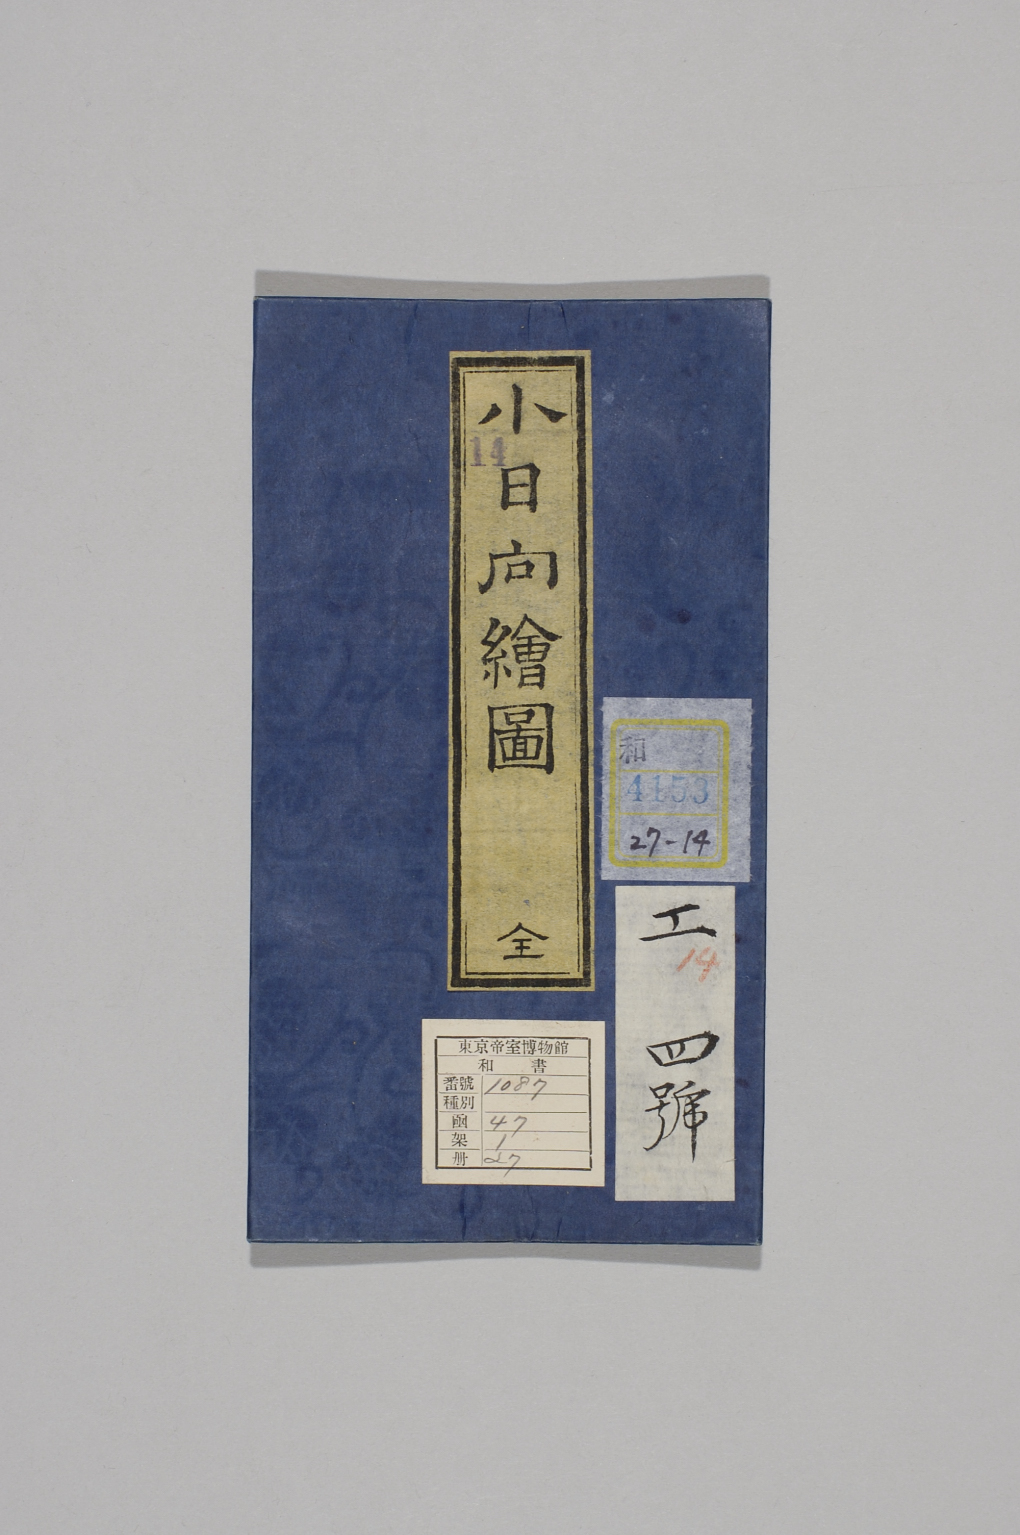 小日向繪圖
全
14
和
4153
27-14
工
14
四號
東京帝室博物館
和書
番號 1087
種別
凾 47
架 1
册 27